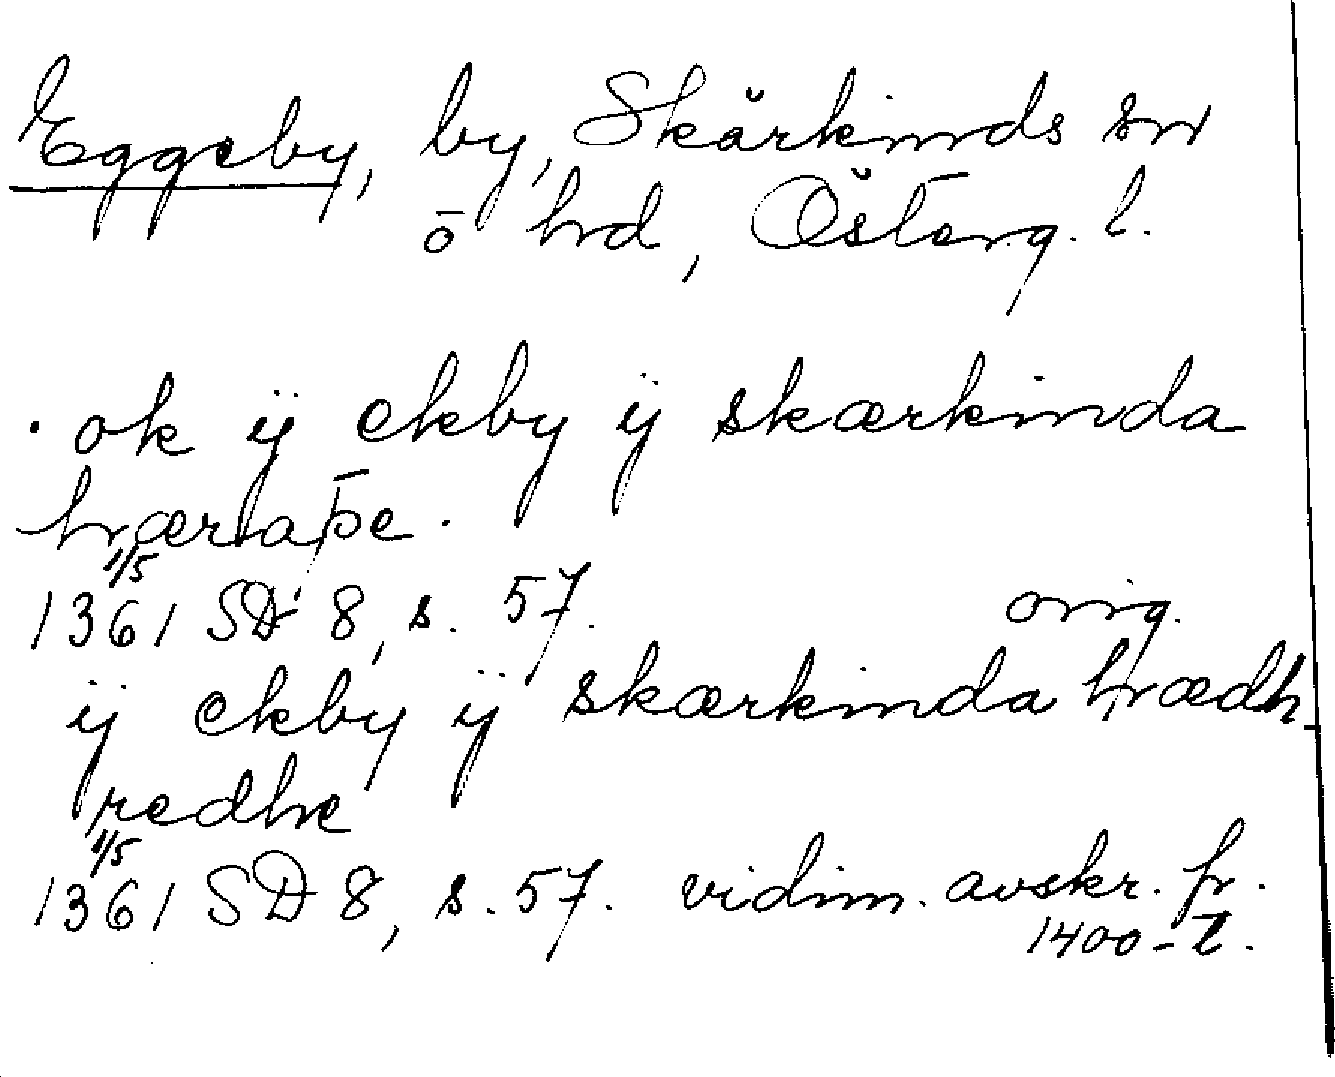 Eggeby, by, Skärkinds sn
o hd, Österg. l.
. ok ij ekby ij skærkinda
hæraþe.
1/5
1361 SD 8, s. 57. orig.
ij ekby ij skærkinda hrædh
redhe
1/5
1361 SD 8, s. 57. vidim. avskr. fr.
1400-t.